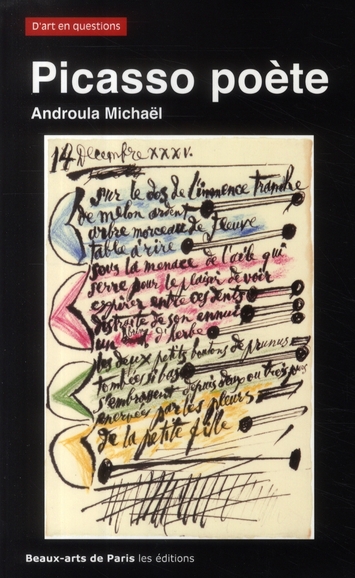 D'art en questions
Picasso poète
Androula Michaël
14 Decembre XXXV.
sur le dos de l'immence tranche
de melon ardent
arbre morceau de fleuve
table à rire
sous la menace de l'aile qui
serre pour le plaisir de voir
expirer entre ces dents
distraite de son ennui
un d'herbe
les deux petits boutons de prunus
tombés si bas
s'embrassent depuis deux ou trois
énervées par les pleurs
de la petite fille
Beaux-arts de Paris les éditions